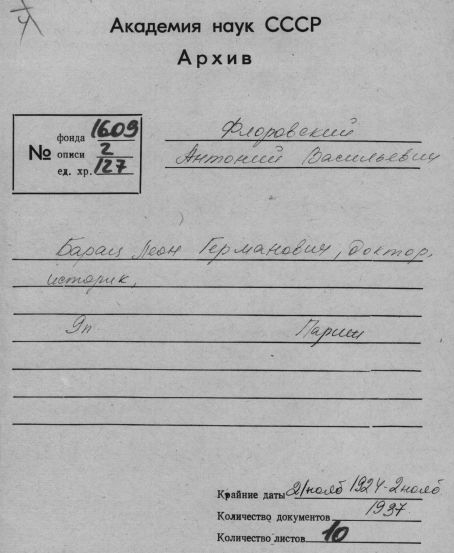 Академия наук СССР
Архив
№
фонда 1609
описи 2
ед. хр. 127
Флоровский
Антоний Васильевич
Барац Леон Германович, доктор,
историк,
9п. Париж
Крайние даты 21 нояб 1924-2 нояб
1937
Количество документов
Количество листов 10